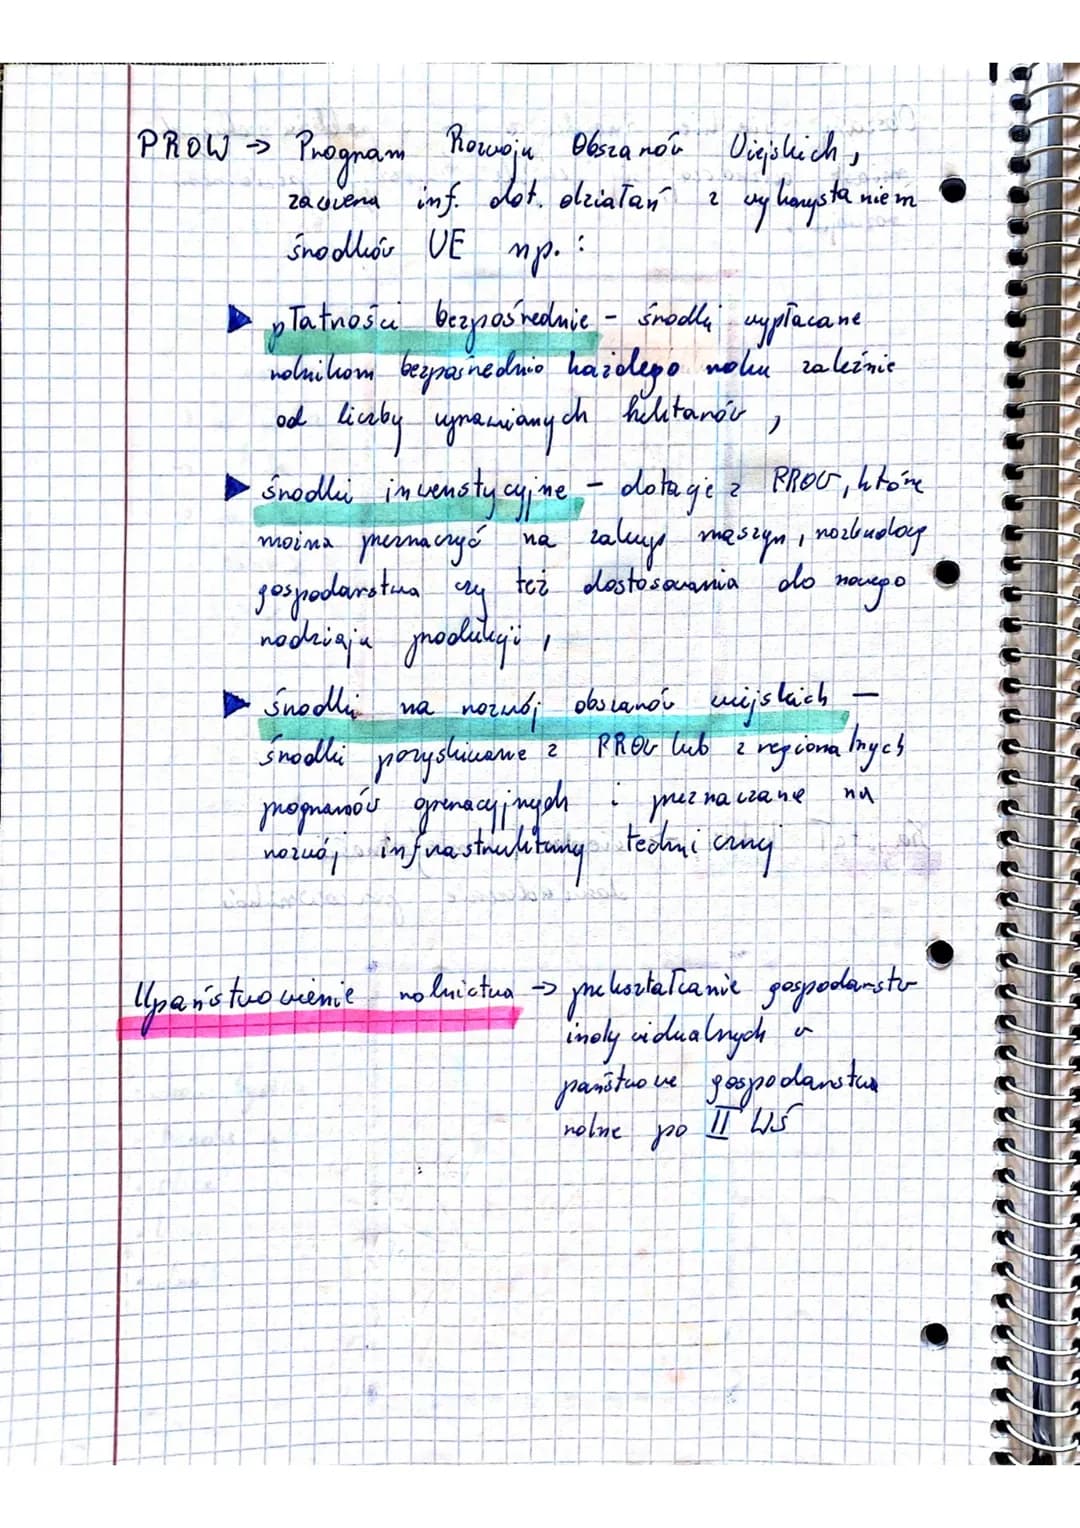 PROW → Program Rozwoju Obszarów Wiejskich,
zawiera inf. dot. działań z wykorzystaniem
środków UE np.:
płatności bezpośrednie - środki wypłacane
rolnikom bezpośrednio każdego roku zależnie
od liczby uprawianych hektarów,
środki inwenstycyjne - dotacje z PROW, które
można przeznaczyć na zakup maszyn, rozbudowę
gospodarstwa czy też dostosowania do nowego
rodzaju produkcji,
środki na rozwój obszarów wiejskich -
środki pozyskiwane z PROW lub z regionalnych
programów operacyjnych i przeznaczane na
rozwój infrastruktury technicznej
Upaństwowienie rolnictwa → przekształcanie gospodarstw
indywidualnych w
państwowe gospodarstwa
rolne po II WŚ